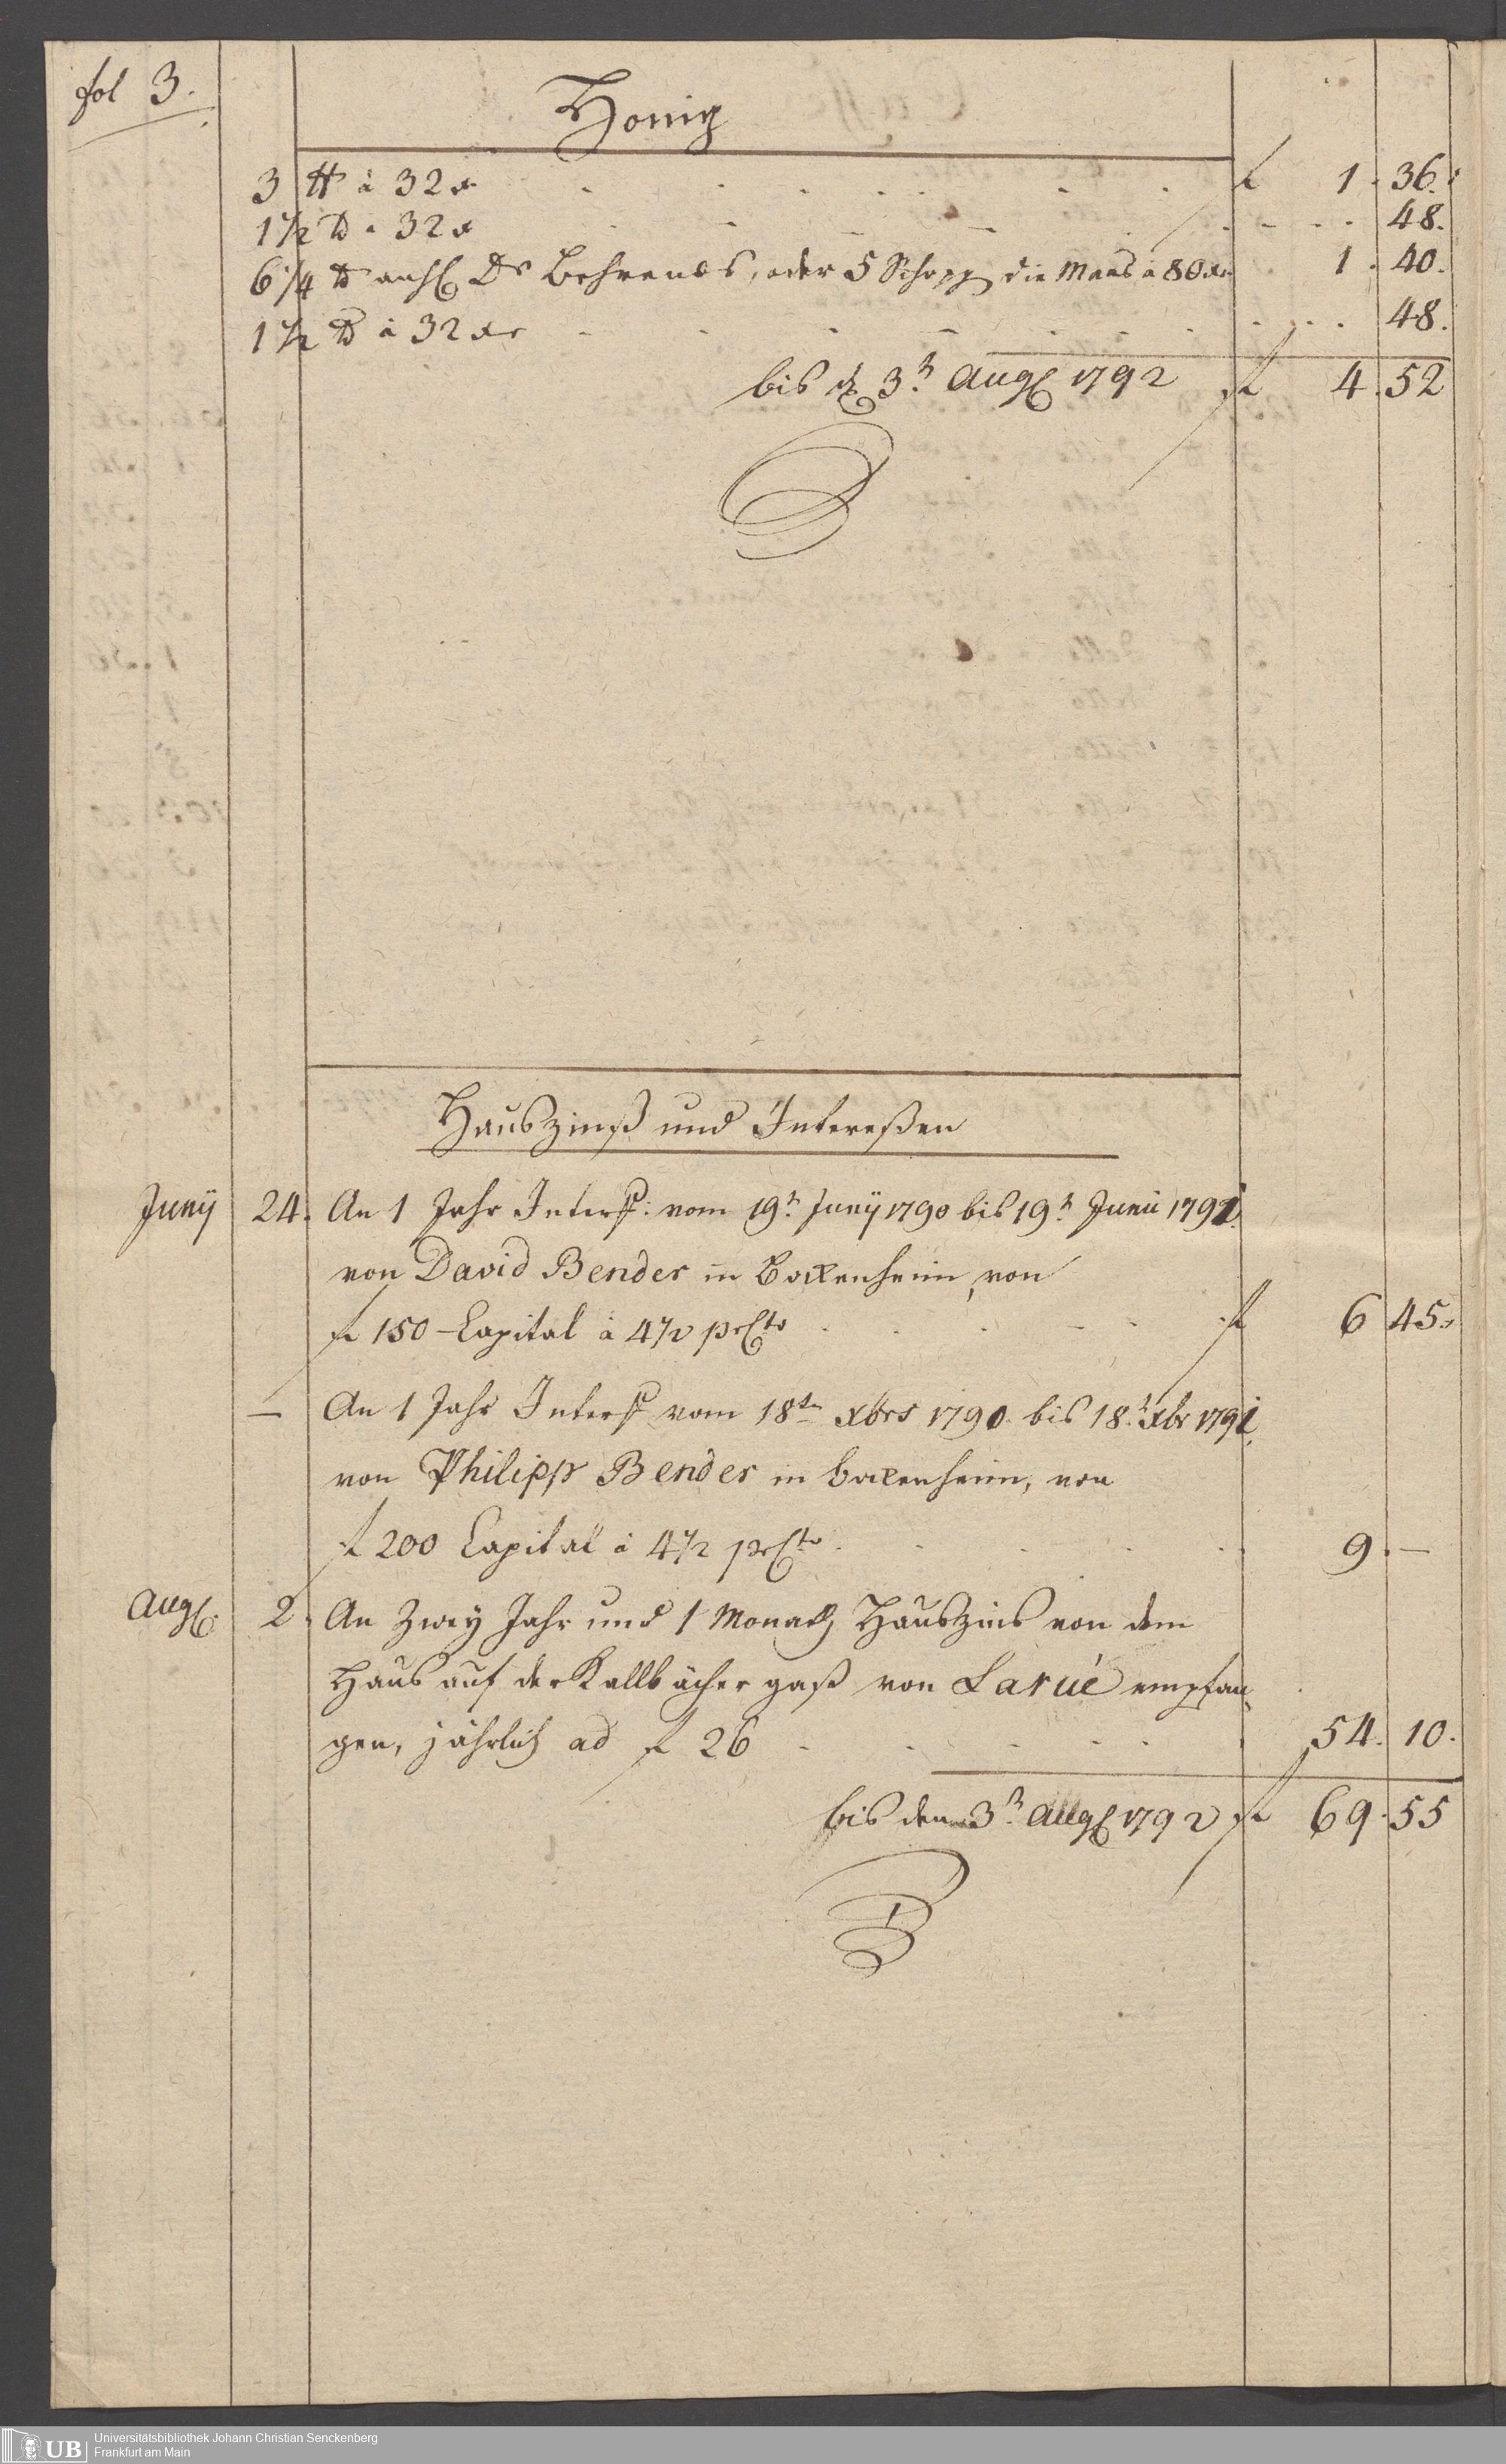 fol 3.
Honig
3 ℔ à 32 x f 1. 36.
1 1/2 ℔ à 32 x 48.
6 1/4 ℔ Dr Behrends, oder 5 Schopp die Maas à 80 xr 1. 40.
1 1/2 ℔ à 32 xr 48.
bis d 3t Aug 1792 f 4. 52
Hauszinß und Intereßen
Junÿ 24. An 1 Jahr Interß: vom 19t Junÿ 1790 bis 19t Junii 1791.
von David Bender in Bockenheim, von
f 150 Capital à 4 1/2 prCto f 6 45.
— An 1 Jahr Interß vom 18ten xbrs 1790. bis 18t xbr 1791.
von Philipp Bender in Bockenheim, von
f 200 Capital à 4 1/2 prCto 9. —
Aug. 2. An Zweÿ Jahr und 1 Monath Hauszins von dem
Haus auf der Kallbächer gaß von Larué empfan
gen, jährlich ad f 26 54. 10.
bis den 3t Aug 1792 f 69. 55
UB Universitätsbibliothek Johann Christian Senckenberg
Frankfurt am Main